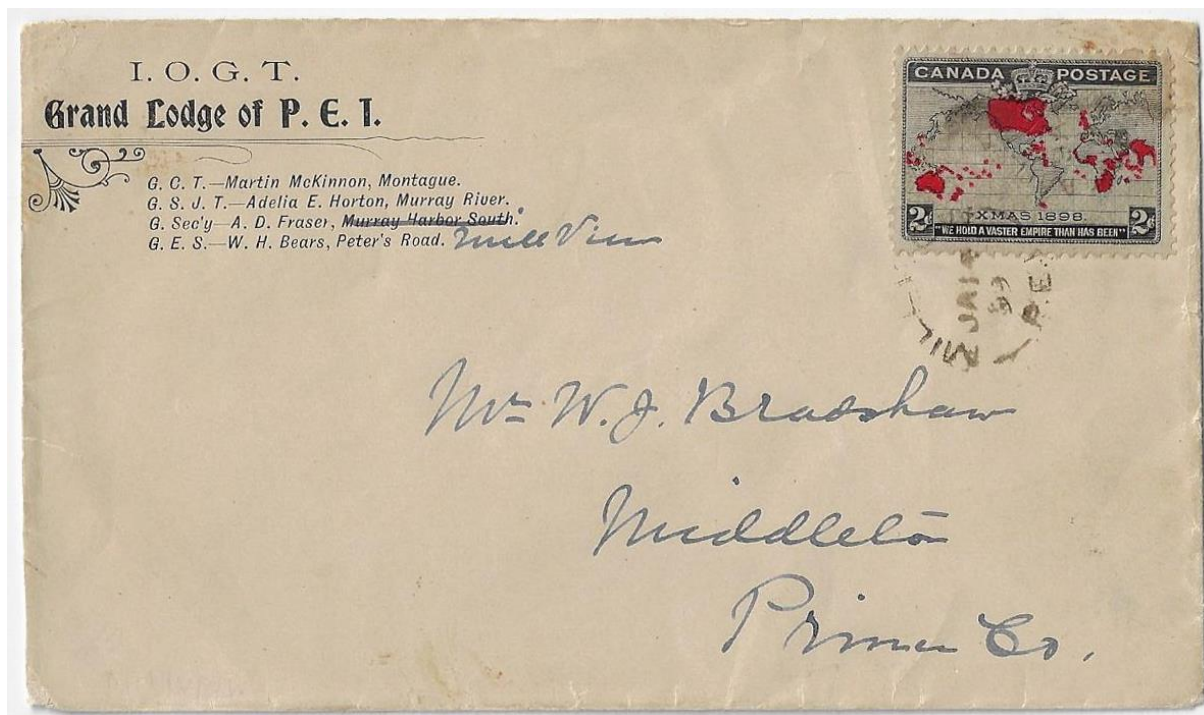 I. O. G. T.
Grand Lodge of P. E. I.
G. C. T.—Martin McKinnon, Montague.
G. S. J. T.—Adelia E. Horton, Murray River.
G. Sec'y—A. D. Fraser, Murray Harbor South.
G. E. S.—W. H. Bears, Peter's Road. Mill View
CANADA POSTAGE
2¢ XMAS 1898 2¢
"WE HOLD A VASTER EMPIRE THAN HAS BEEN"
MILL
JA 14
99
P.E.I
Mr W. J. Bradshaw
Middleton
Prince Co.